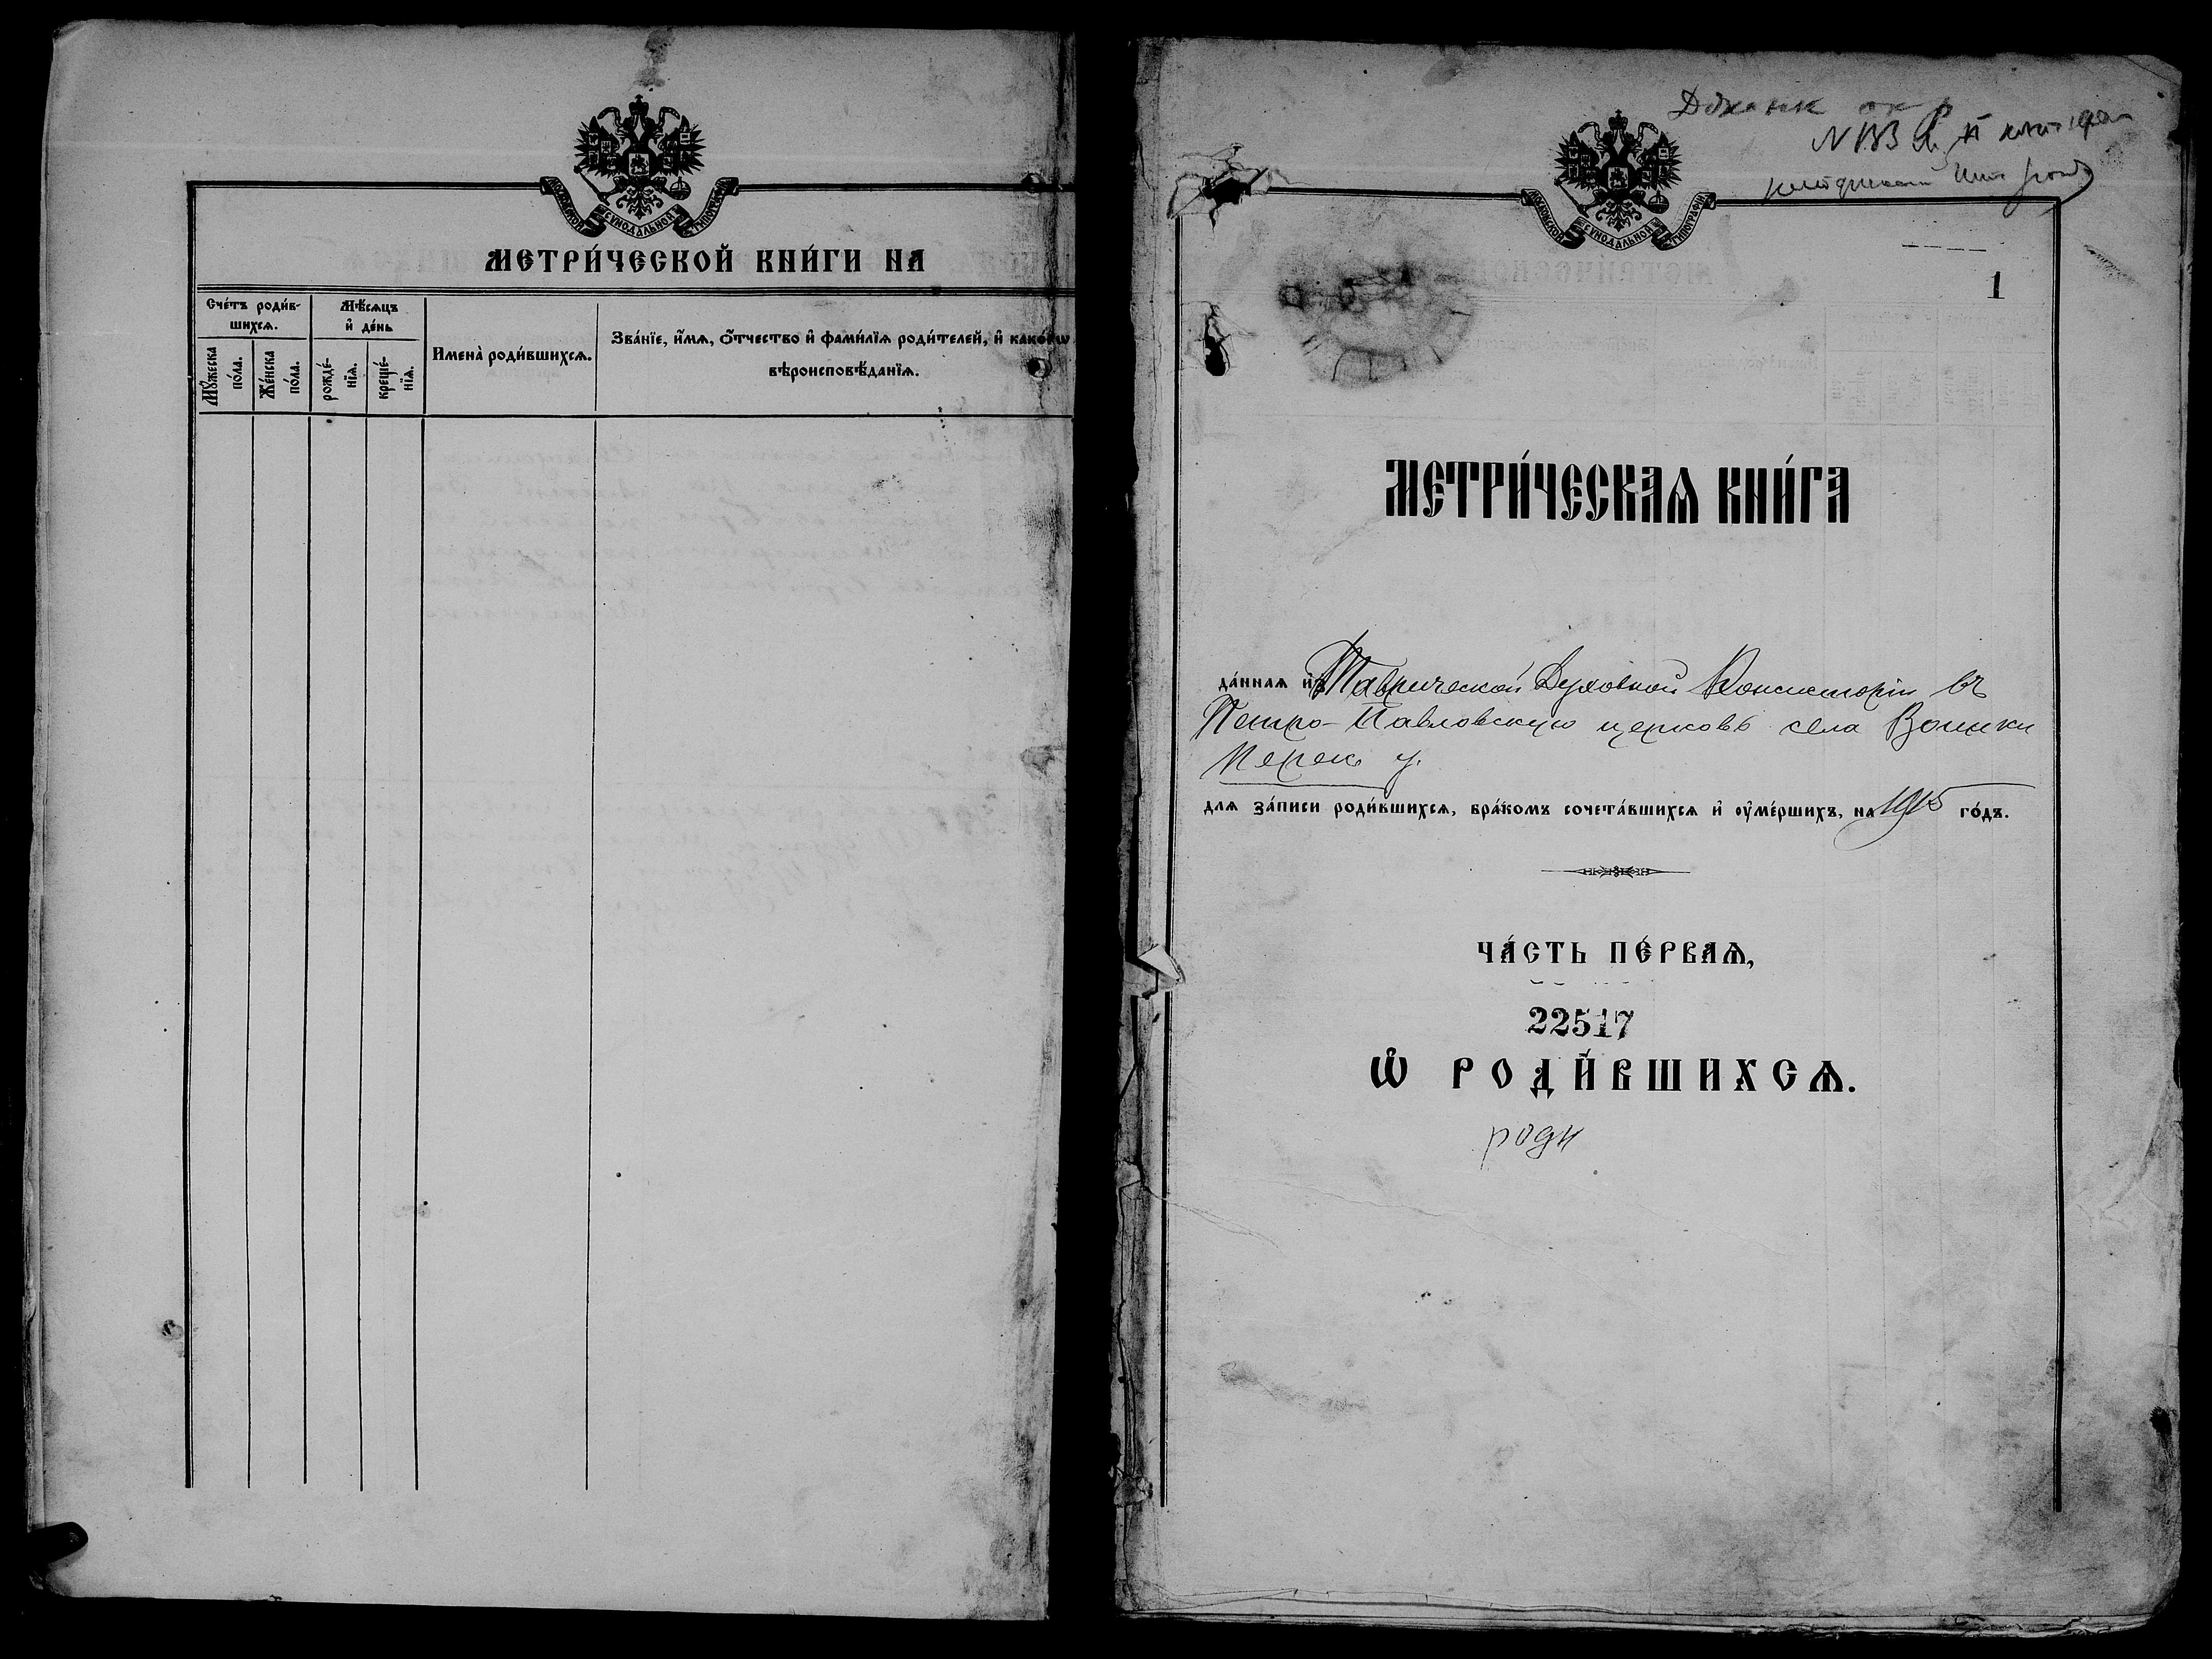 МОСКОВСКОЙ СѴНОДАЛЬНОЙ ТИПОГРАФІИ
МЕТРИ́ЧЕСКОЙ КНИ́ГИ НА
Сче́тъ роди́в-
шихсѧ.
Мѣ́сѧцъ
и҆ де́нь
Имена̀ роди́вшихсѧ.
Зва́нїе, и҆́мѧ, ѻ҆́тчество и҆ фами́лїѧ роди́телей, и҆ како́гѡ
вѣроисповѣ́данїѧ.
Мꙋ́жеска
по́ла.
Же́нска
по́ла.
рожде́-
нїѧ.
креще́-
нїѧ.
N 133
МОСКОВСКОЙ СѴНОДАЛЬНОЙ ТИПОГРАФІИ
1
МЕТРИ́ЧЕСКАѦ КНИ́ГА
да́ннаѧ и҆зъ Таврической Духовной Консисторіи въ
Петро-Павловскую церковь села Воинки
Перек. у.
длѧ за́писи роди́вшихсѧ, бра́комъ сочета́вшихсѧ и҆ ᲂу҆ме́ршихъ, на 1915 го́дъ.
ЧА́СТЬ ПЕ́РВАѦ,
22517
Ѡ҆ РОДИ́ВШИХСѦ.
роди